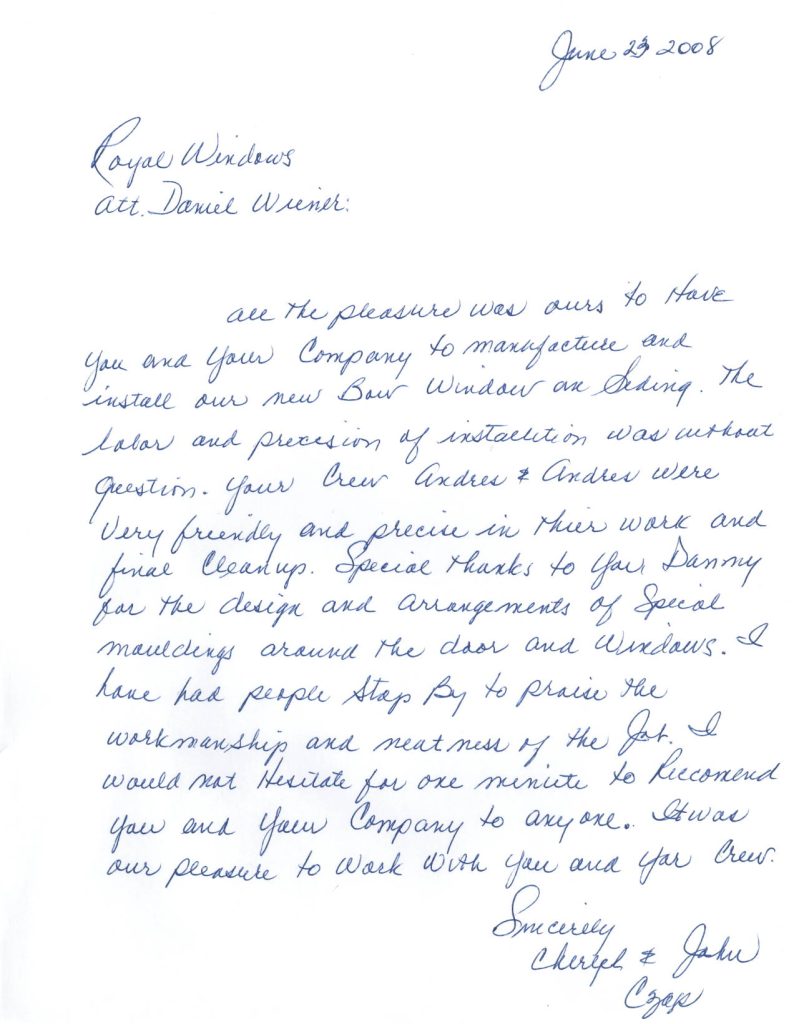 June 23 2008
Royal Windows
Att. Daniel Wiener:
All the pleasure was ours to Have
you and your Company to manufacture and
install our new Bow Window an Siding. The
labor and precision of installition was without
question. Your Crew Andres & Andres were
Very friendly and precise in thier work and
final Cleanup. Special thanks to You Danny
for the design and arrangements of Special
mouldings around the door and Windows. I
have had people Stop By to praise the
workmanship and neatness of the Job. I
would not Hesitate for one miniute to Reccomend
you and your Company to anyone. It was
our pleasure to Work With you and yor Crew.
Sincerely
Cheryl & John
Czap